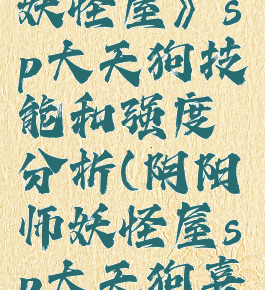 妖怪屋》s
p大天狗技
能和强度
分析(阴阳
师妖怪屋s
p大天狗喜